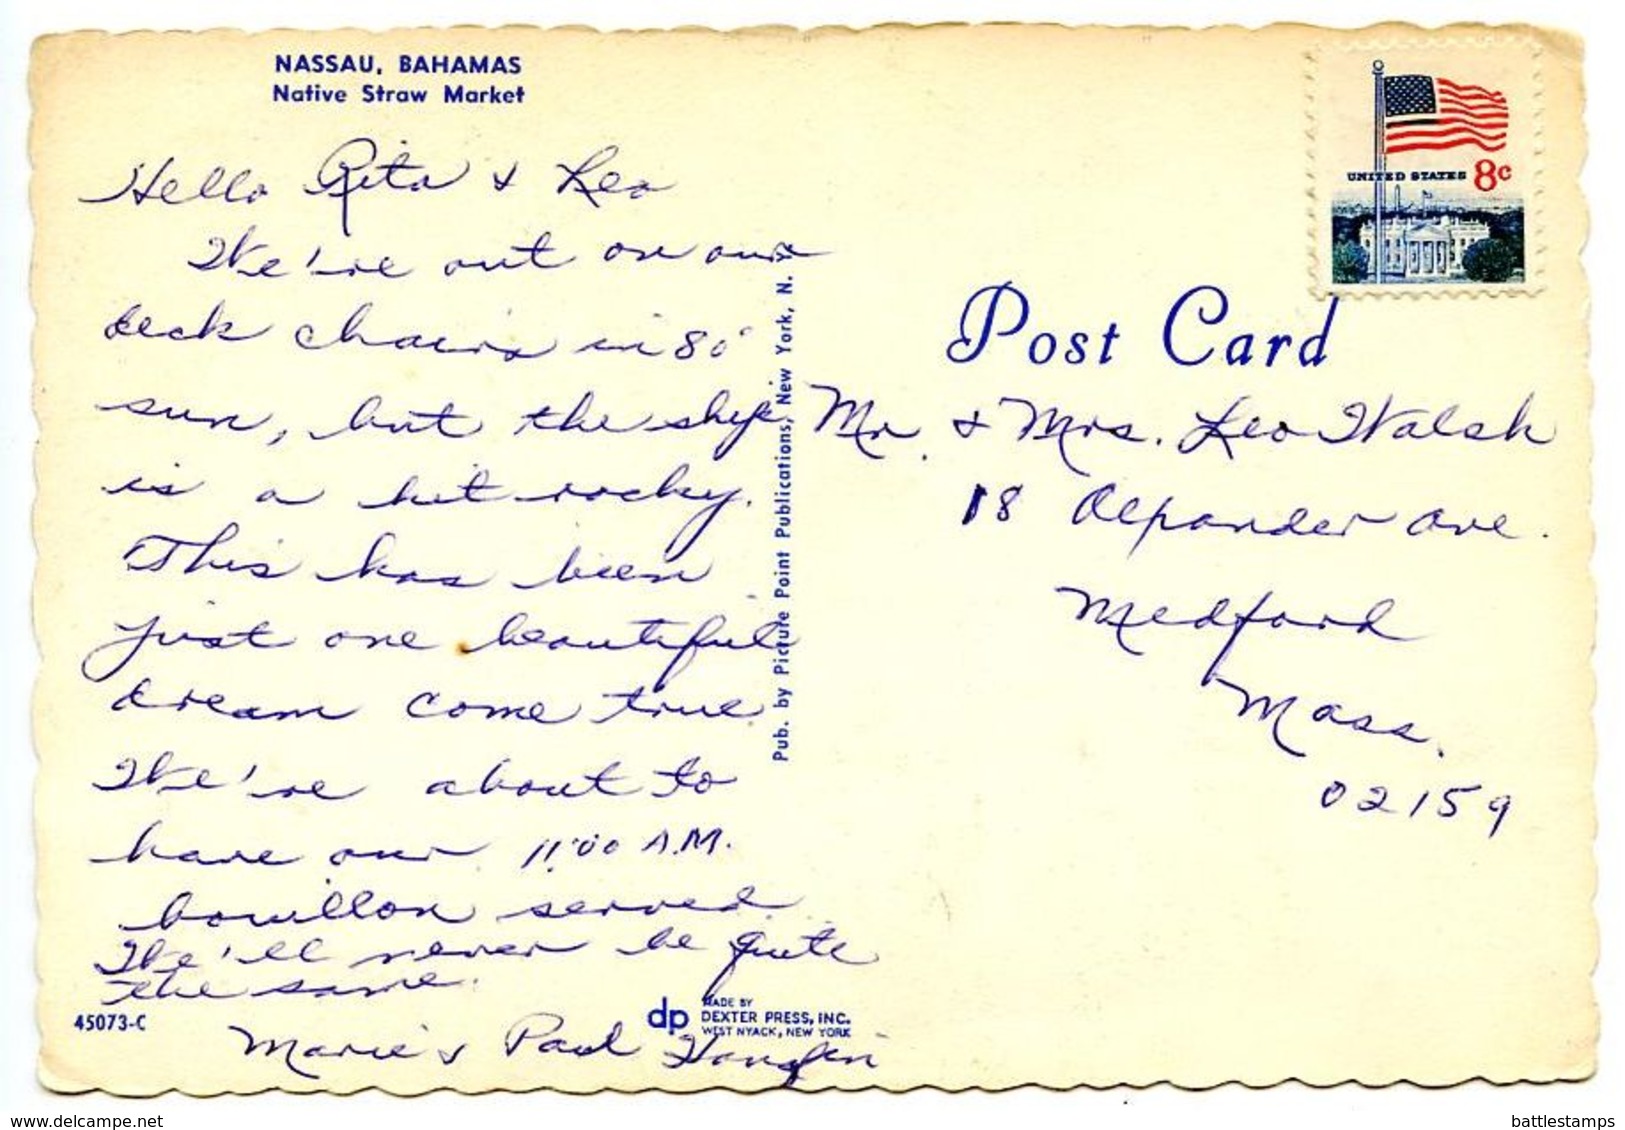 NASSAU, BAHAMAS
Native Straw Market
Hello Rita & Leo
We're out on our
deck chairs in 80°
sun, but the ship
is a bit rocky.
This has been
just one beautiful
dream come true.
We're about to
have our 11:00 A.M.
bouillon served.
We'll never be quite
the same.
Marie & Paul
45073-C
Pub. by Picture Point Publications, New York, N. Y.
dp
MADE BY
DEXTER PRESS, INC.
WEST NYACK, NEW YORK
UNITED STATES 8c
Post Card
Mr. & Mrs. Leo Walsh
18 Ave.
Medford
Mass.
02159
delcampe.net
battlestamps